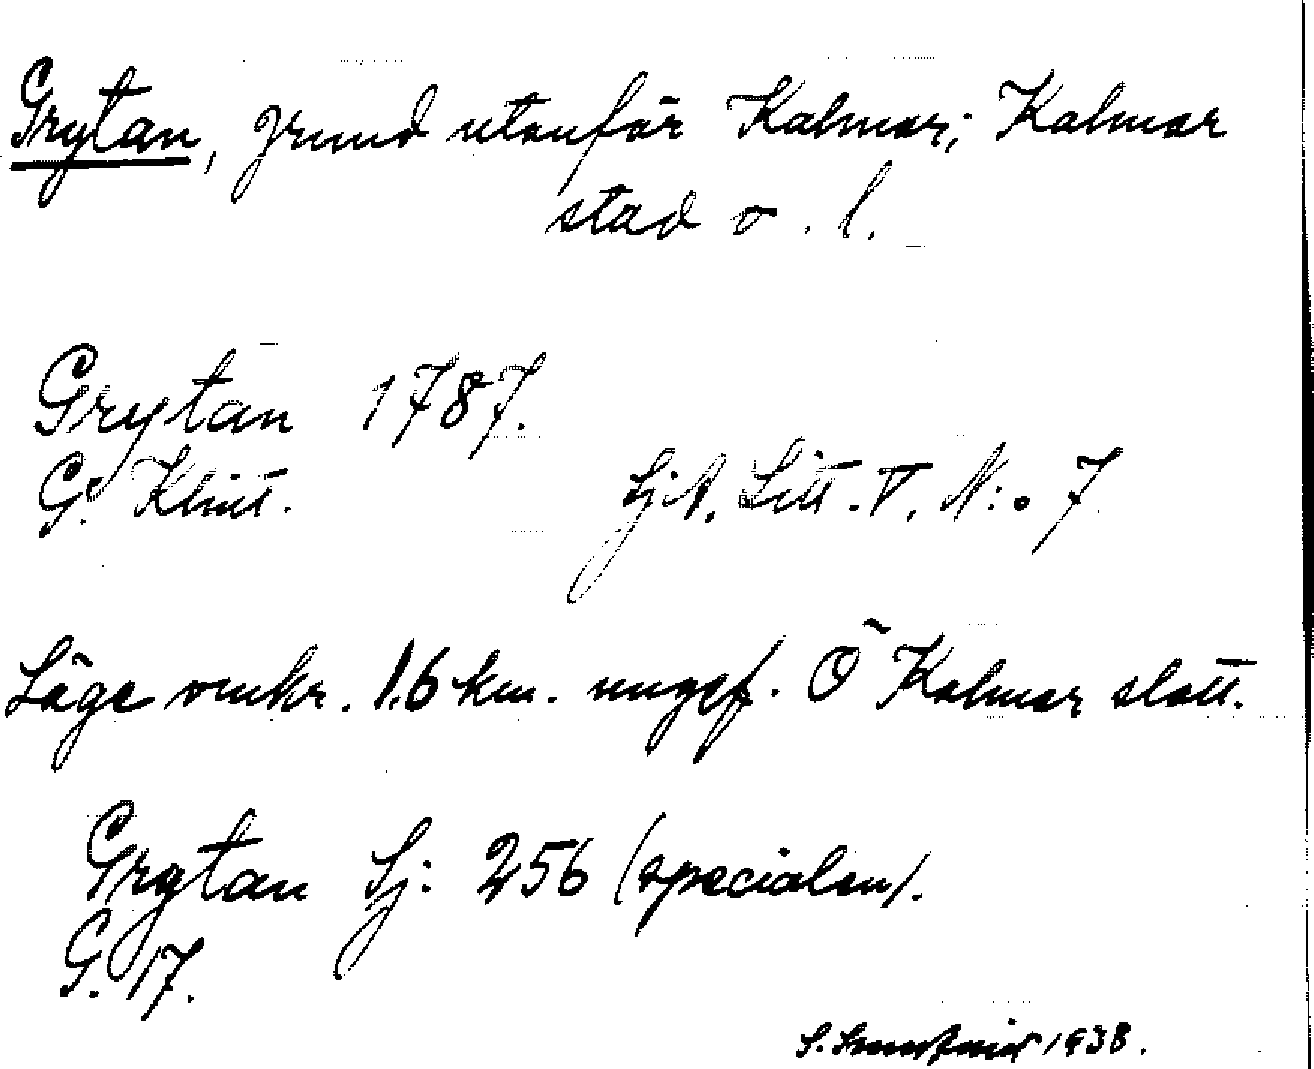 Grytan, grund utanför Kalmar; Kalmar
stad o. l.
Grytan 1787.
G. Klint. SjA. Litt. V. N:o 7
Läge omkr. 1.6 km. ungef. Ö Kalmar slott.
Grytan Sj: 256 (specialen).
G. 17.
S. 1938.